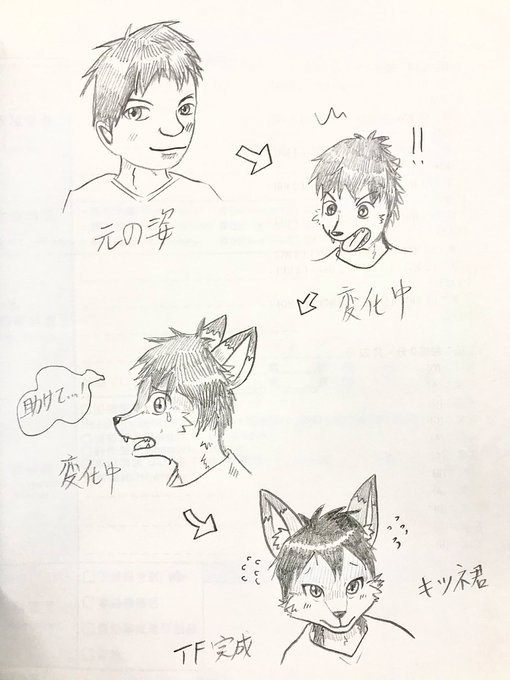 元の姿
!!
変化中
助けて…!
変化中
キツネ君
TF完成